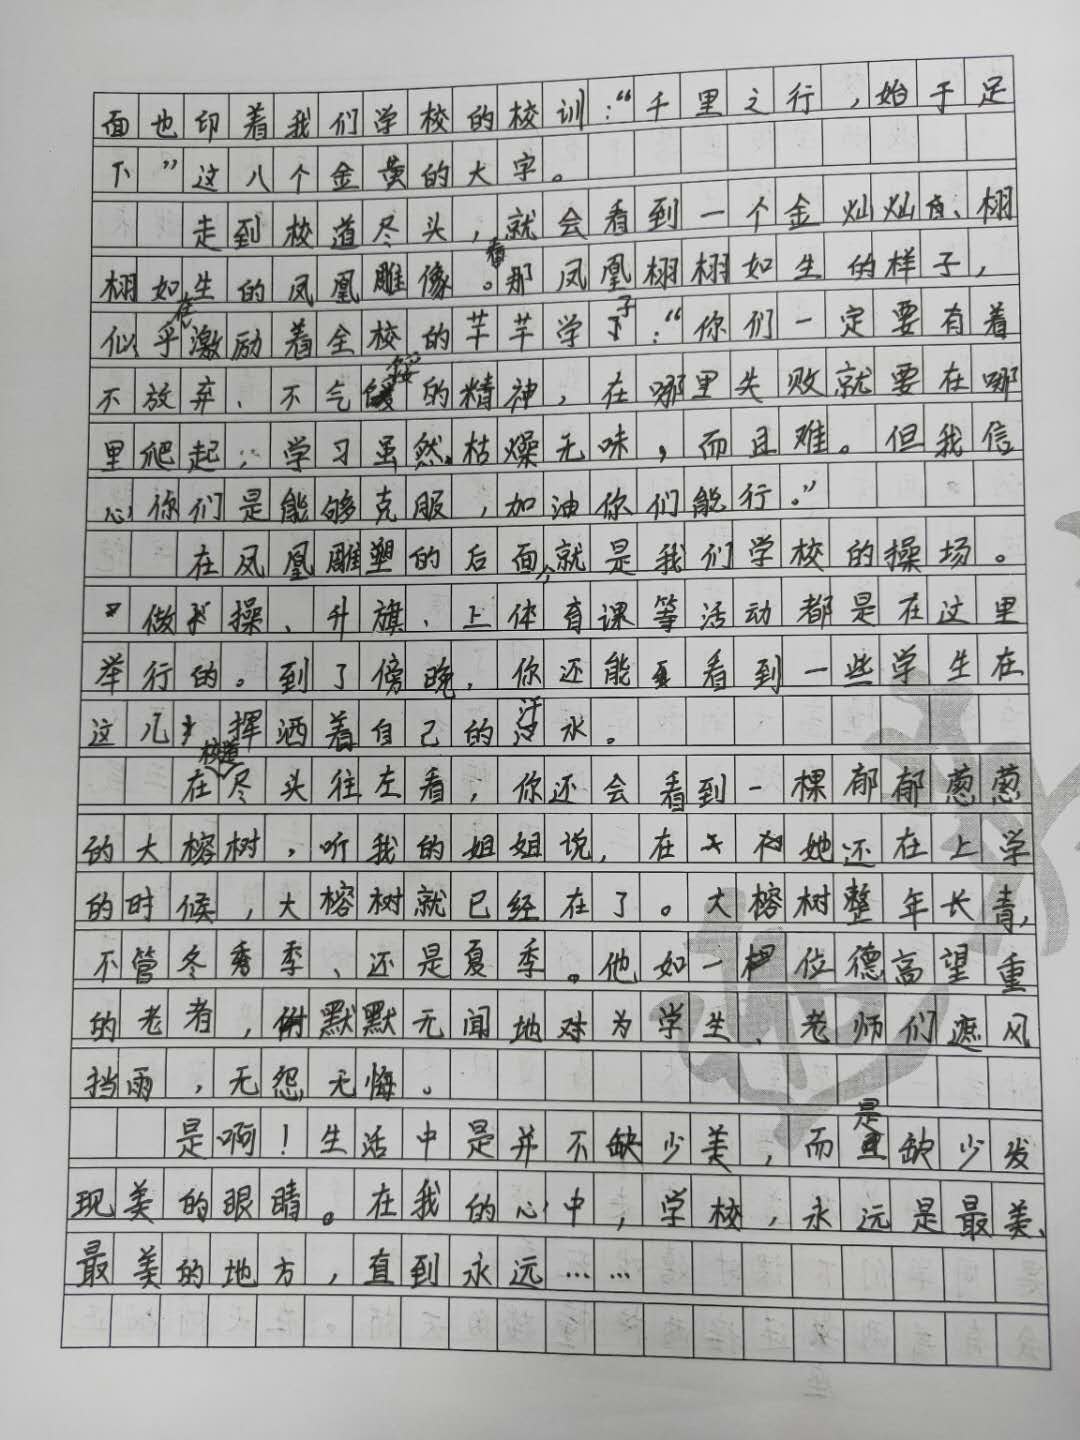 面也印着我们学校的校训:“千里之行,始于足
下”这八个金黄的大字。
走到校道尽头,就会看到一个金灿灿的、栩
栩如生的凤凰雕像。看那凤凰栩栩如生的样子,
似乎在激励着全校的芊芊学子:“你们一定要有着
不放弃、不气馁的精神,在哪里失败就要在哪
里爬起;学习虽然枯燥无味,而且难。但我信
心你们是能够克服,加油你们能行。”
在凤凰雕塑的后面,就是我们学校的操场。
做操、升旗、上体育课等活动都是在这里
举行的。到了傍晚,你还能看到一些学生在
这儿挥洒着自己的汗水。
在校道尽头往左看,你还会看到一棵郁郁葱葱
的大榕树,听我的姐姐说,在她还在上学
的时候,大榕树就已经在了。大榕树整年长青,
不管冬季、还是夏季。他如一位德高望重
的老者,默默无闻地对为学生、老师们遮风
挡雨,无怨无悔。
是啊!生活中是并不缺少美,而是缺少发
现美的眼睛。在我的心中,学校,永远是最美、
最美的地方,直到永远……